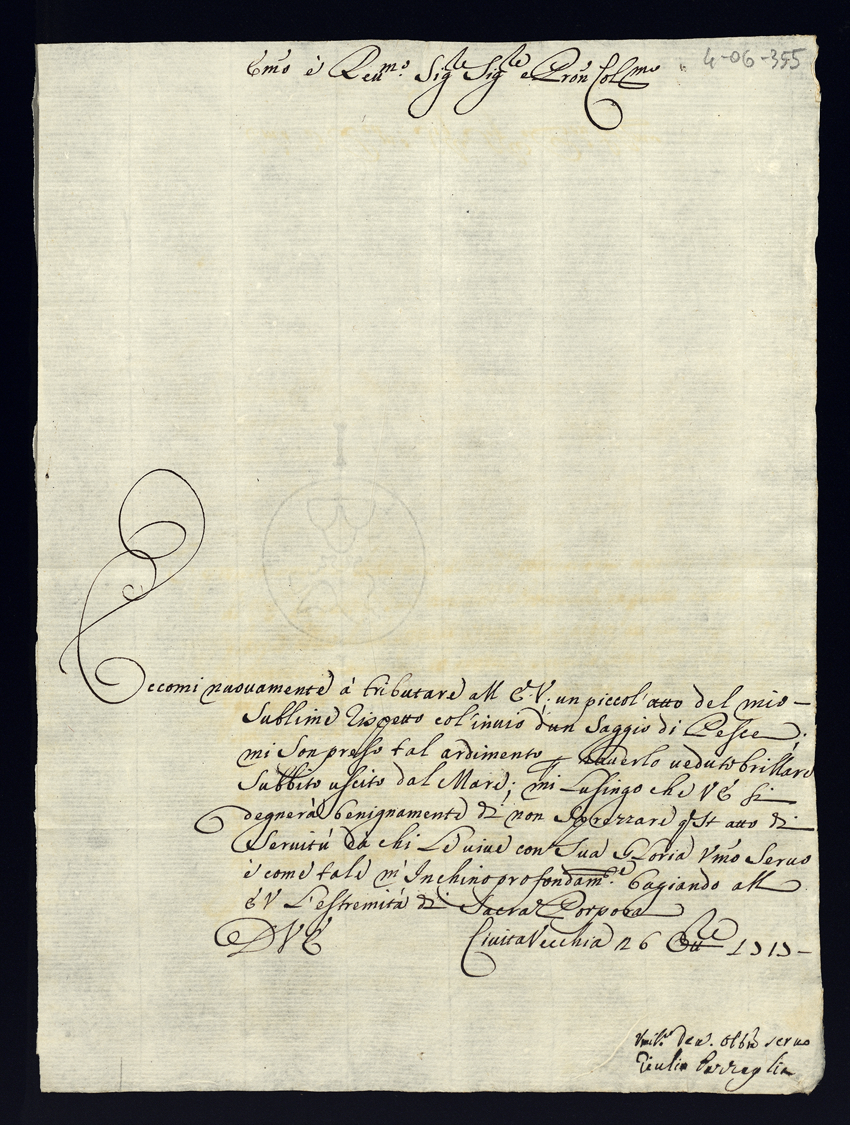 Emo è Reu.mo Sig.le Sig.le e Pron Col.mo
4-06-355
Eccomi nuouamente à tributare all E.V. un piccol atto del mio
Sublime Rispetto col'inuio d'un Saggio di Pesce;
mi Son preso tal ardimento hauerlo ueduto brillare
Subbito uscito dal Mare; mi Lusingo che VE Si
degnerà benignamente di non Sprezzare q.St atto di
Seruitù da chi Le uiue con Sua Gloria Vmo Seruo
è come tale m'Inchino profondam.e bagiando all
E V L'estremità di Sacra Porpora
D V E CiuitaVecchia 26
Vmil.o deu. obb.o seruo
Giulio